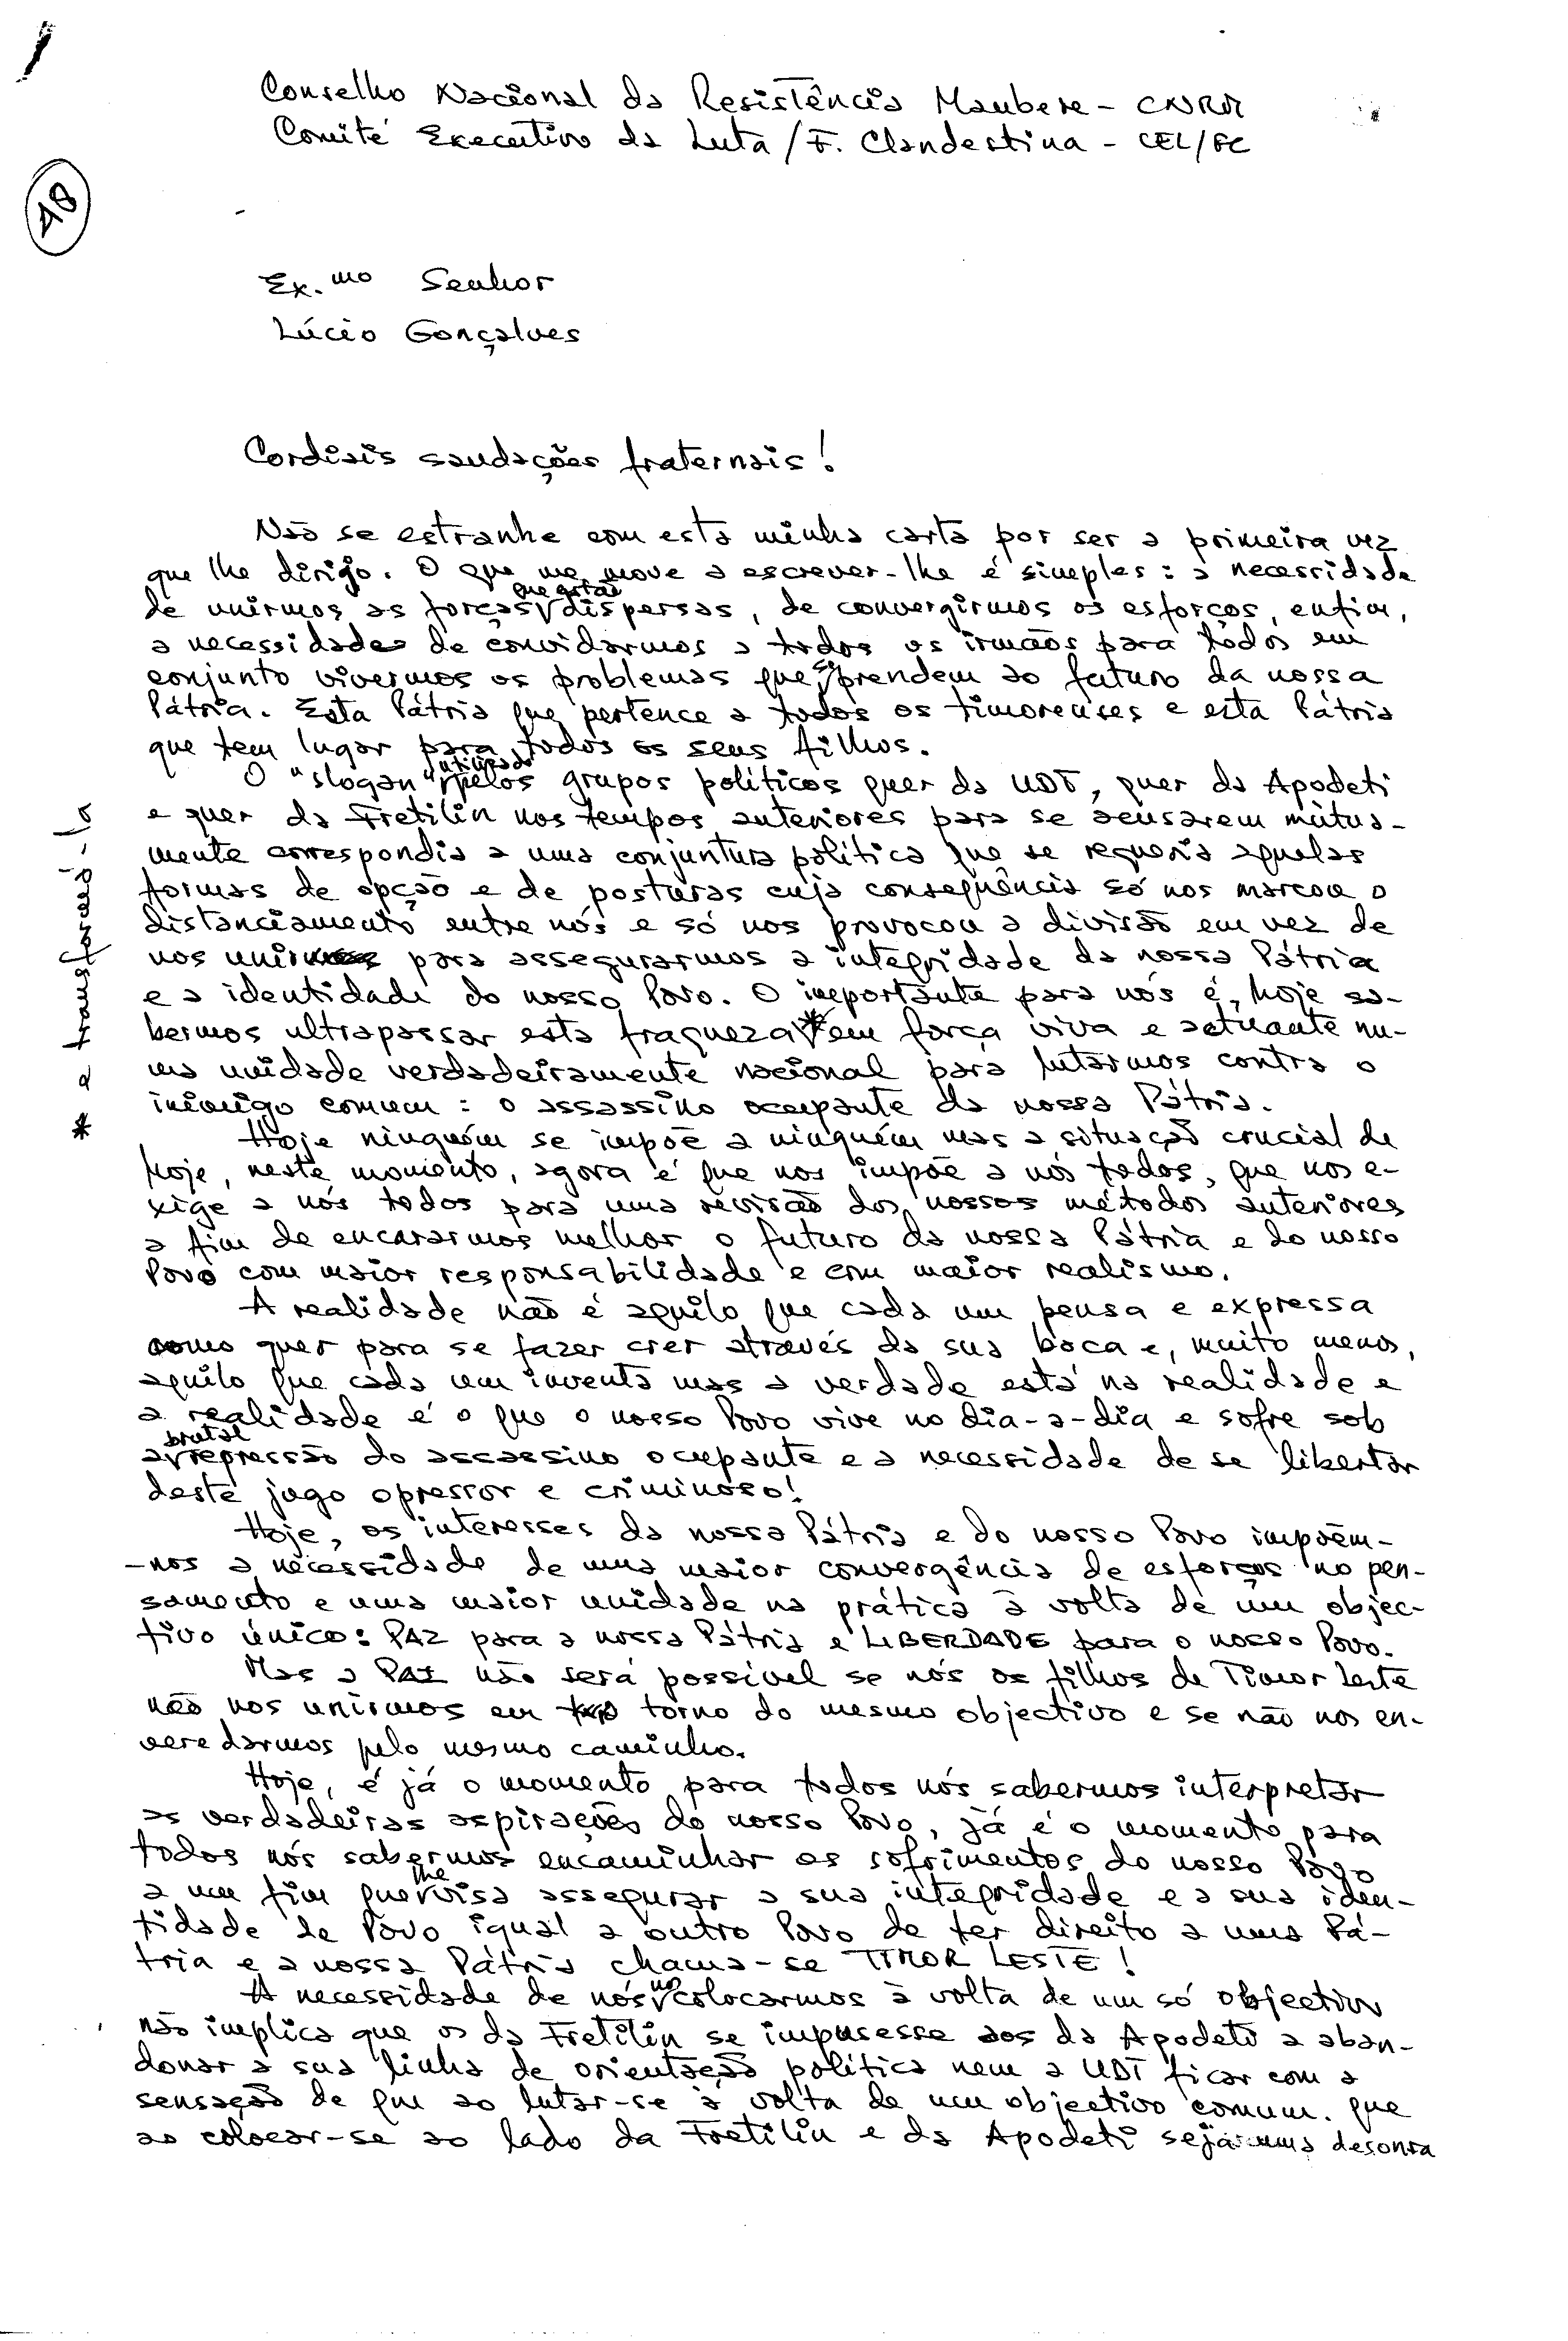 Conselho Nacional da Resistência Maubere - CNRM
Comité Executivo da Luta / F. Clandestina - CEL/FC
A8
Ex.mo Senhor
Lúcio Gonçalves
Cordiais saudações fraternais!
Não se estranhe com esta minha carta por ser a primeira vez
que lhe dirijo. O que me move a escrever-lhe é simples: a necessidade
de unirmos as forças que estão dispersas, de convergirmos os esforços, enfim,
a necessidade de convidarmos a todos os irmãos para todos em
conjunto vivermos os problemas que se prendem ao futuro da nossa
Pátria. Esta Pátria que pertence a todos os timorenses e esta Pátria
que tem lugar para todos os seus filhos.
O "slogan" utilizado pelos grupos políticos quer da UDT, quer da Apodeti
e quer da Fretilin nos tempos anteriores para se acusarem mútua-
mente correspondia a uma conjuntura política que se requeria aquelas
formas de opção e de posturas cuja consequência só nos marcou o
distanciamento entre nós e só nos provocou a divisão em vez de
nos unir para assegurarmos a integridade da nossa Pátria
e a identidade do nosso Povo. O importante para nós é, hoje sa-
bermos ultrapassar esta fraqueza * em força viva e actuante nu-
ma unidade verdadeiramente nacional para lutarmos contra o
inimigo comum: o assassino ocupante da nossa Pátria.
* e transforcá-la
Hoje ninguém se impõe a ninguém mas a situação crucial de
hoje, neste momento, agora é que nos impõe a nós todos, que nos e-
xige a nós todos para uma revisão dos nossos métodos anteriores
a fim de encararmos melhor o futuro da nossa Pátria e do nosso
Povo com maior responsabilidade e com maior realismo.
A realidade não é aquilo que cada um pensa e expressa
como quer para se fazer crer através da sua boca e, muito menos,
aquilo que cada um inventa mas a verdade está na realidade e
a realidade é o que o nosso Povo vive no dia-a-dia e sofre sob
a brutal repressão do assassino ocupante e a necessidade de se libertar
deste jugo opressor e criminoso!
Hoje, os interesses da nossa Pátria e do nosso Povo impõem-
-nos a necessidade de uma maior convergência de esforços no pen-
samento e uma maior unidade na prática à volta de um objec-
tivo único: PAZ para a nossa Pátria e LIBERDADE para o nosso Povo.
Mas a PAZ não será possível se nós os filhos de Timor Leste
não nos unirmos em torno do mesmo objectivo e se não nos en-
veredarmos pelo mesmo caminho.
Hoje, é já o momento para todos nós sabermos interpretar
as verdadeiras aspirações do nosso Povo, já é o momento para
todos nós sabermos encaminhar os sofrimentos do nosso Povo
a um fim que lhe visa assegurar a sua integridade e a sua iden-
tidade de Povo igual a outro Povo de ter direito a uma Pá-
tria e a nossa Pátria chama-se TIMOR LESTE!
A necessidade de nós nos colocarmos à volta de um só objectivo
não implica que os da Fretilin se impusesse aos da Apodeti a aban-
donar a sua linha de orientação política nem a UDT ficar com a
sensação de que ao lutar-se à volta de um objectivo comum. que
ao colocar-se ao lado da Fretilin e da Apodeti seja uma desonra